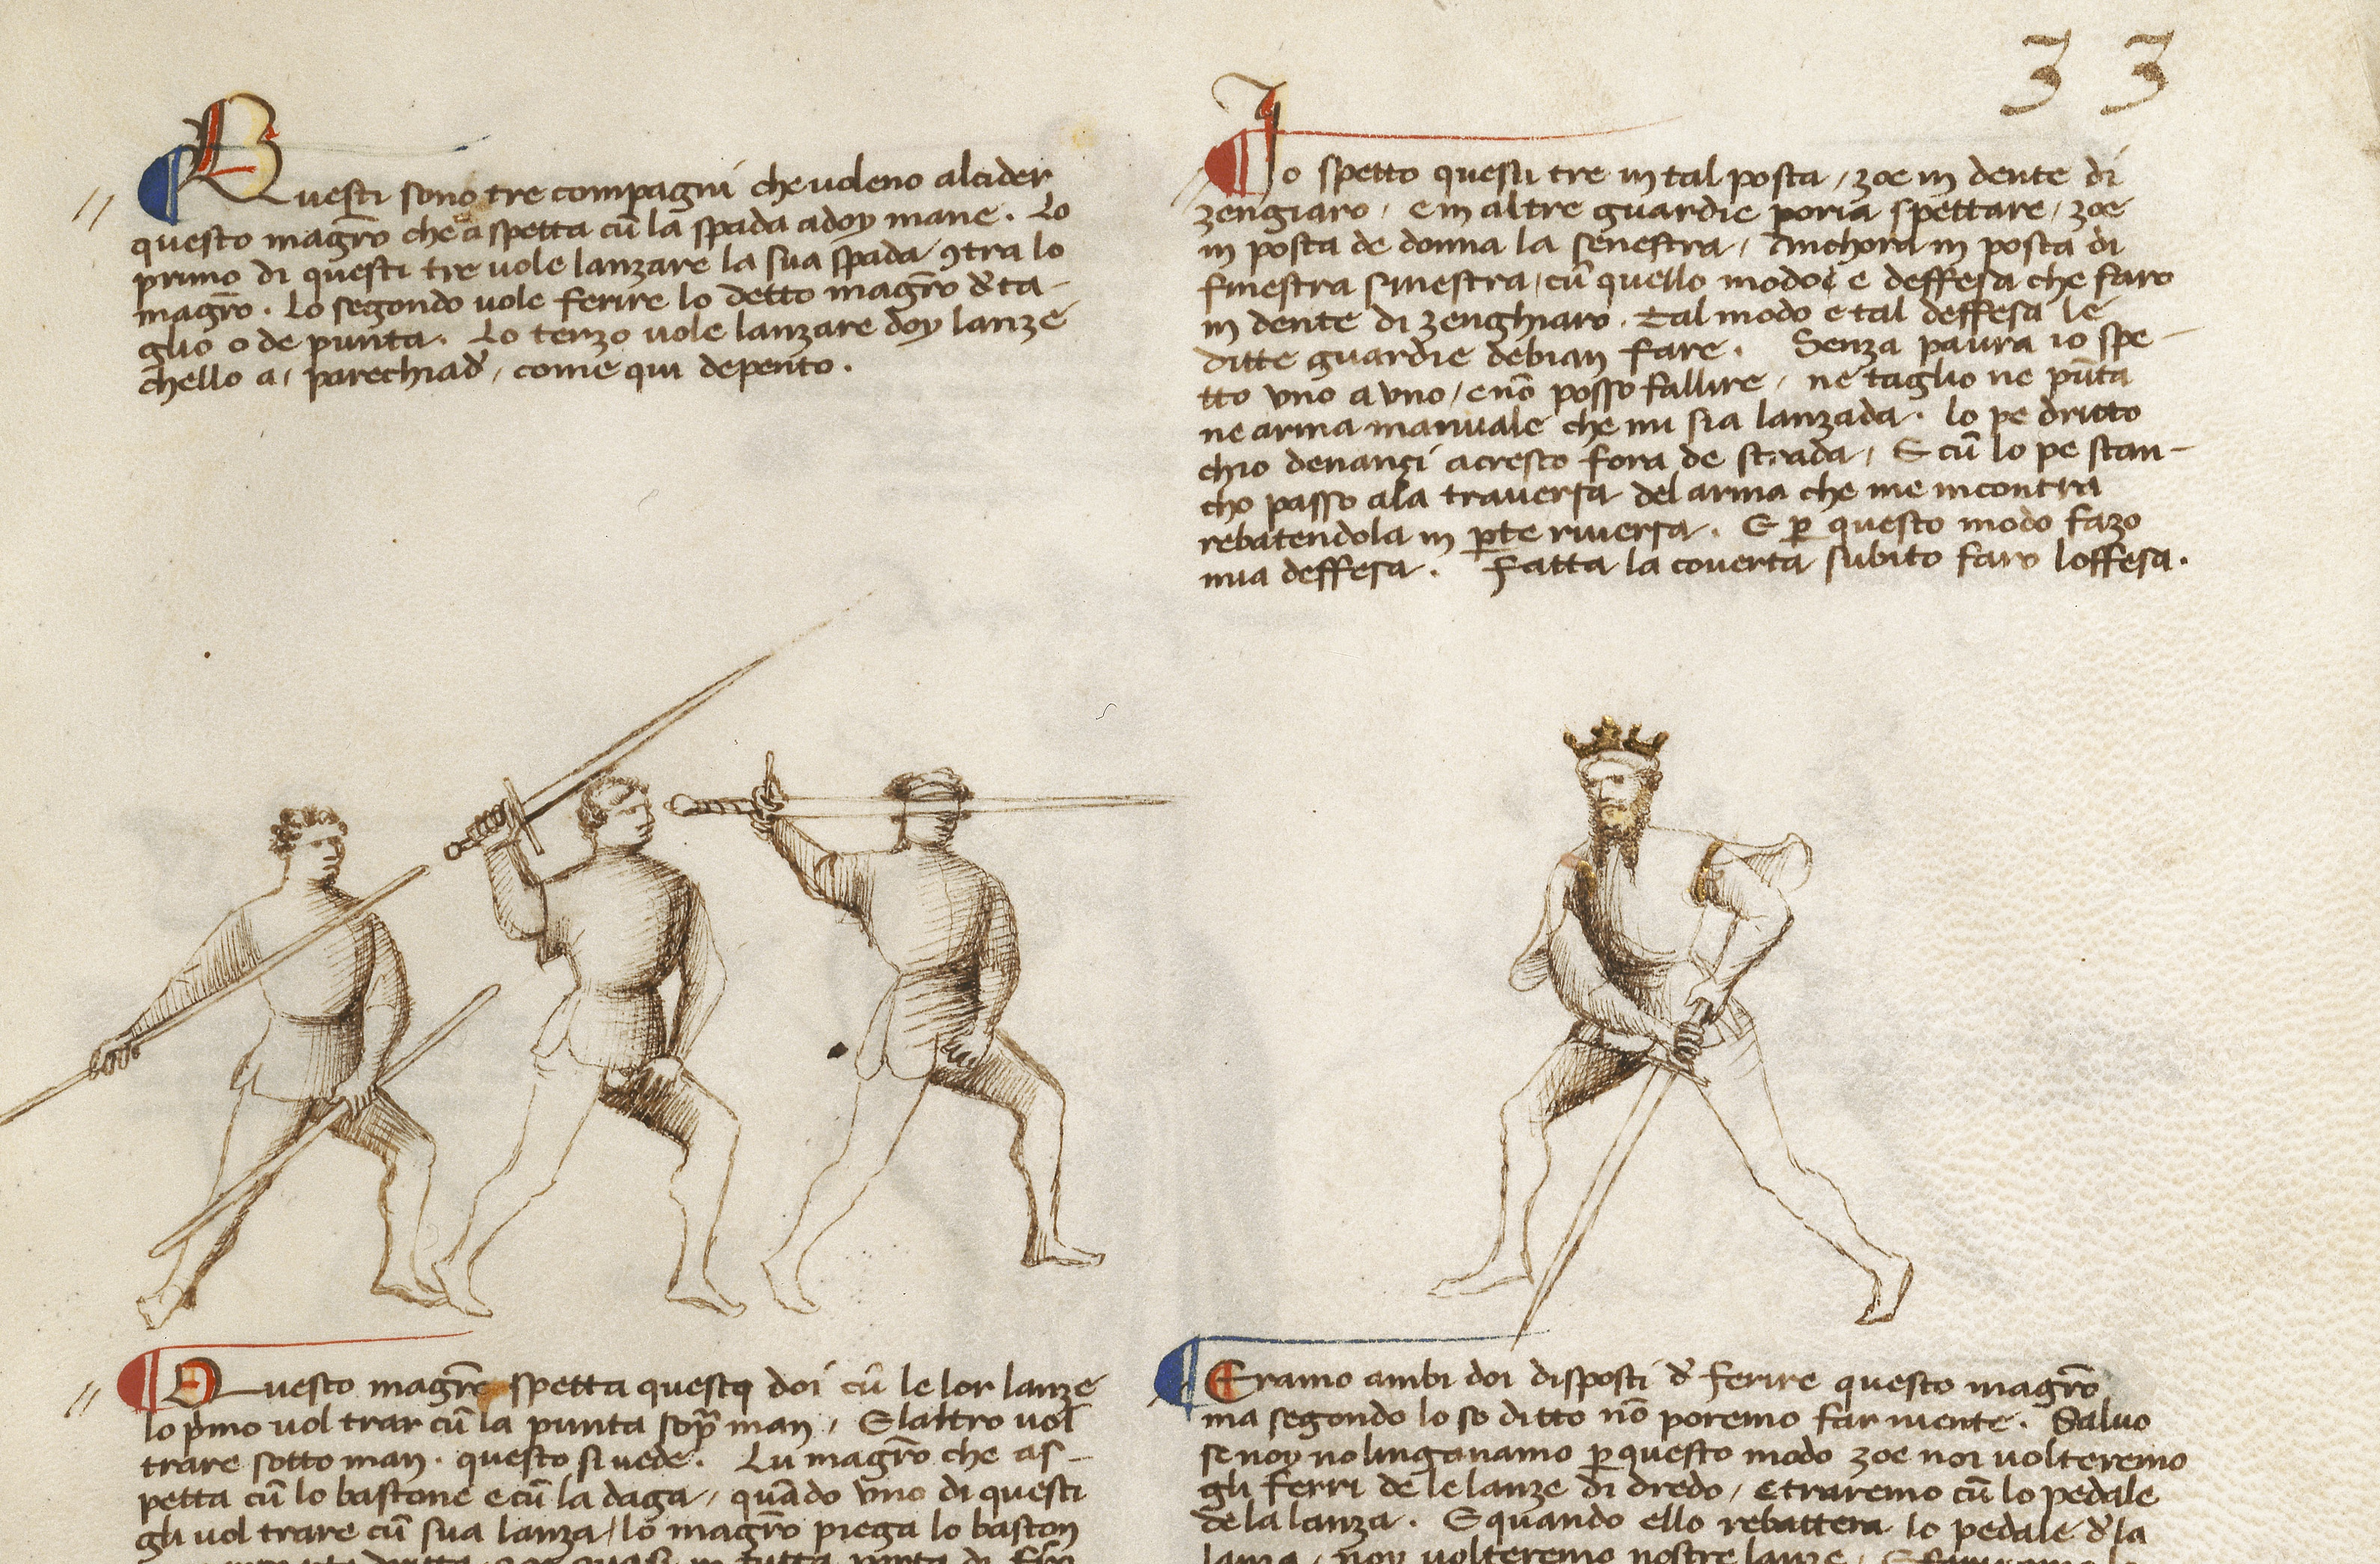 33
Questi sono tre compagni che uoleno alcider
questo magr̄o che aspetta cū la spada a doy mane. Lo
primo di questi tre uole lanzare la sua spada ꝯtra lo
magr̄o. Lo segondo uole ferire lo detto magr̄o d'ta-
glio o de punta. Lo terzo uole lanzare doy lanze
chello a, parechiad', come qui depento.
Io spetto questi tre in tal posta, zoe in dente di
zengiaro, e in altre guardie poria spettare, zoe
in posta de donna la senestra, Anchora in posta di
finestra sinestra, cū quello modo e deffesa che faro
in dente di zenghiaro. Tal modo e tal deffesa le
ditte guardie debian fare. Senza paura io spe-
tto uno a uno, e nō posso fallire, ne taglio ne pūta
ne arma manuale che mi sia lanzada. lo pe dritto
chio denanzi acresco fora de strada, E cū lo pe stan-
cho passo ala trauersa del arma che me incontra
rebatendola in ꝑte riuersa. E ꝑ questo modo fazo
mia deffesa. Fatta la couerta subito faro loffesa.
Questo magr̄o spetta questi doi cū le lor lanze
lo p̄mo uol trar cū la punta sop̄ man, E laltro uol
trare sotto man. questo si uede. Lu magr̄o che as-
petta cū lo bastone e cū la daga, quādo uno di questi
gli uol trare cū sua lanza, lo magr̄o piega lo baston
Eramo ambi doi disposti d' ferire questo magr̄o
ma segondo lo so ditto nō poremo far niente. Saluo
se noy no linganamo ꝑ questo modo zoe noi uolteremo
gli ferri de le lanze di dredo, e traremo cū lo pedale
de la lanza. E quando ello rebattera lo pedale d'la
lanza, noy uolteremo nostre lanze,